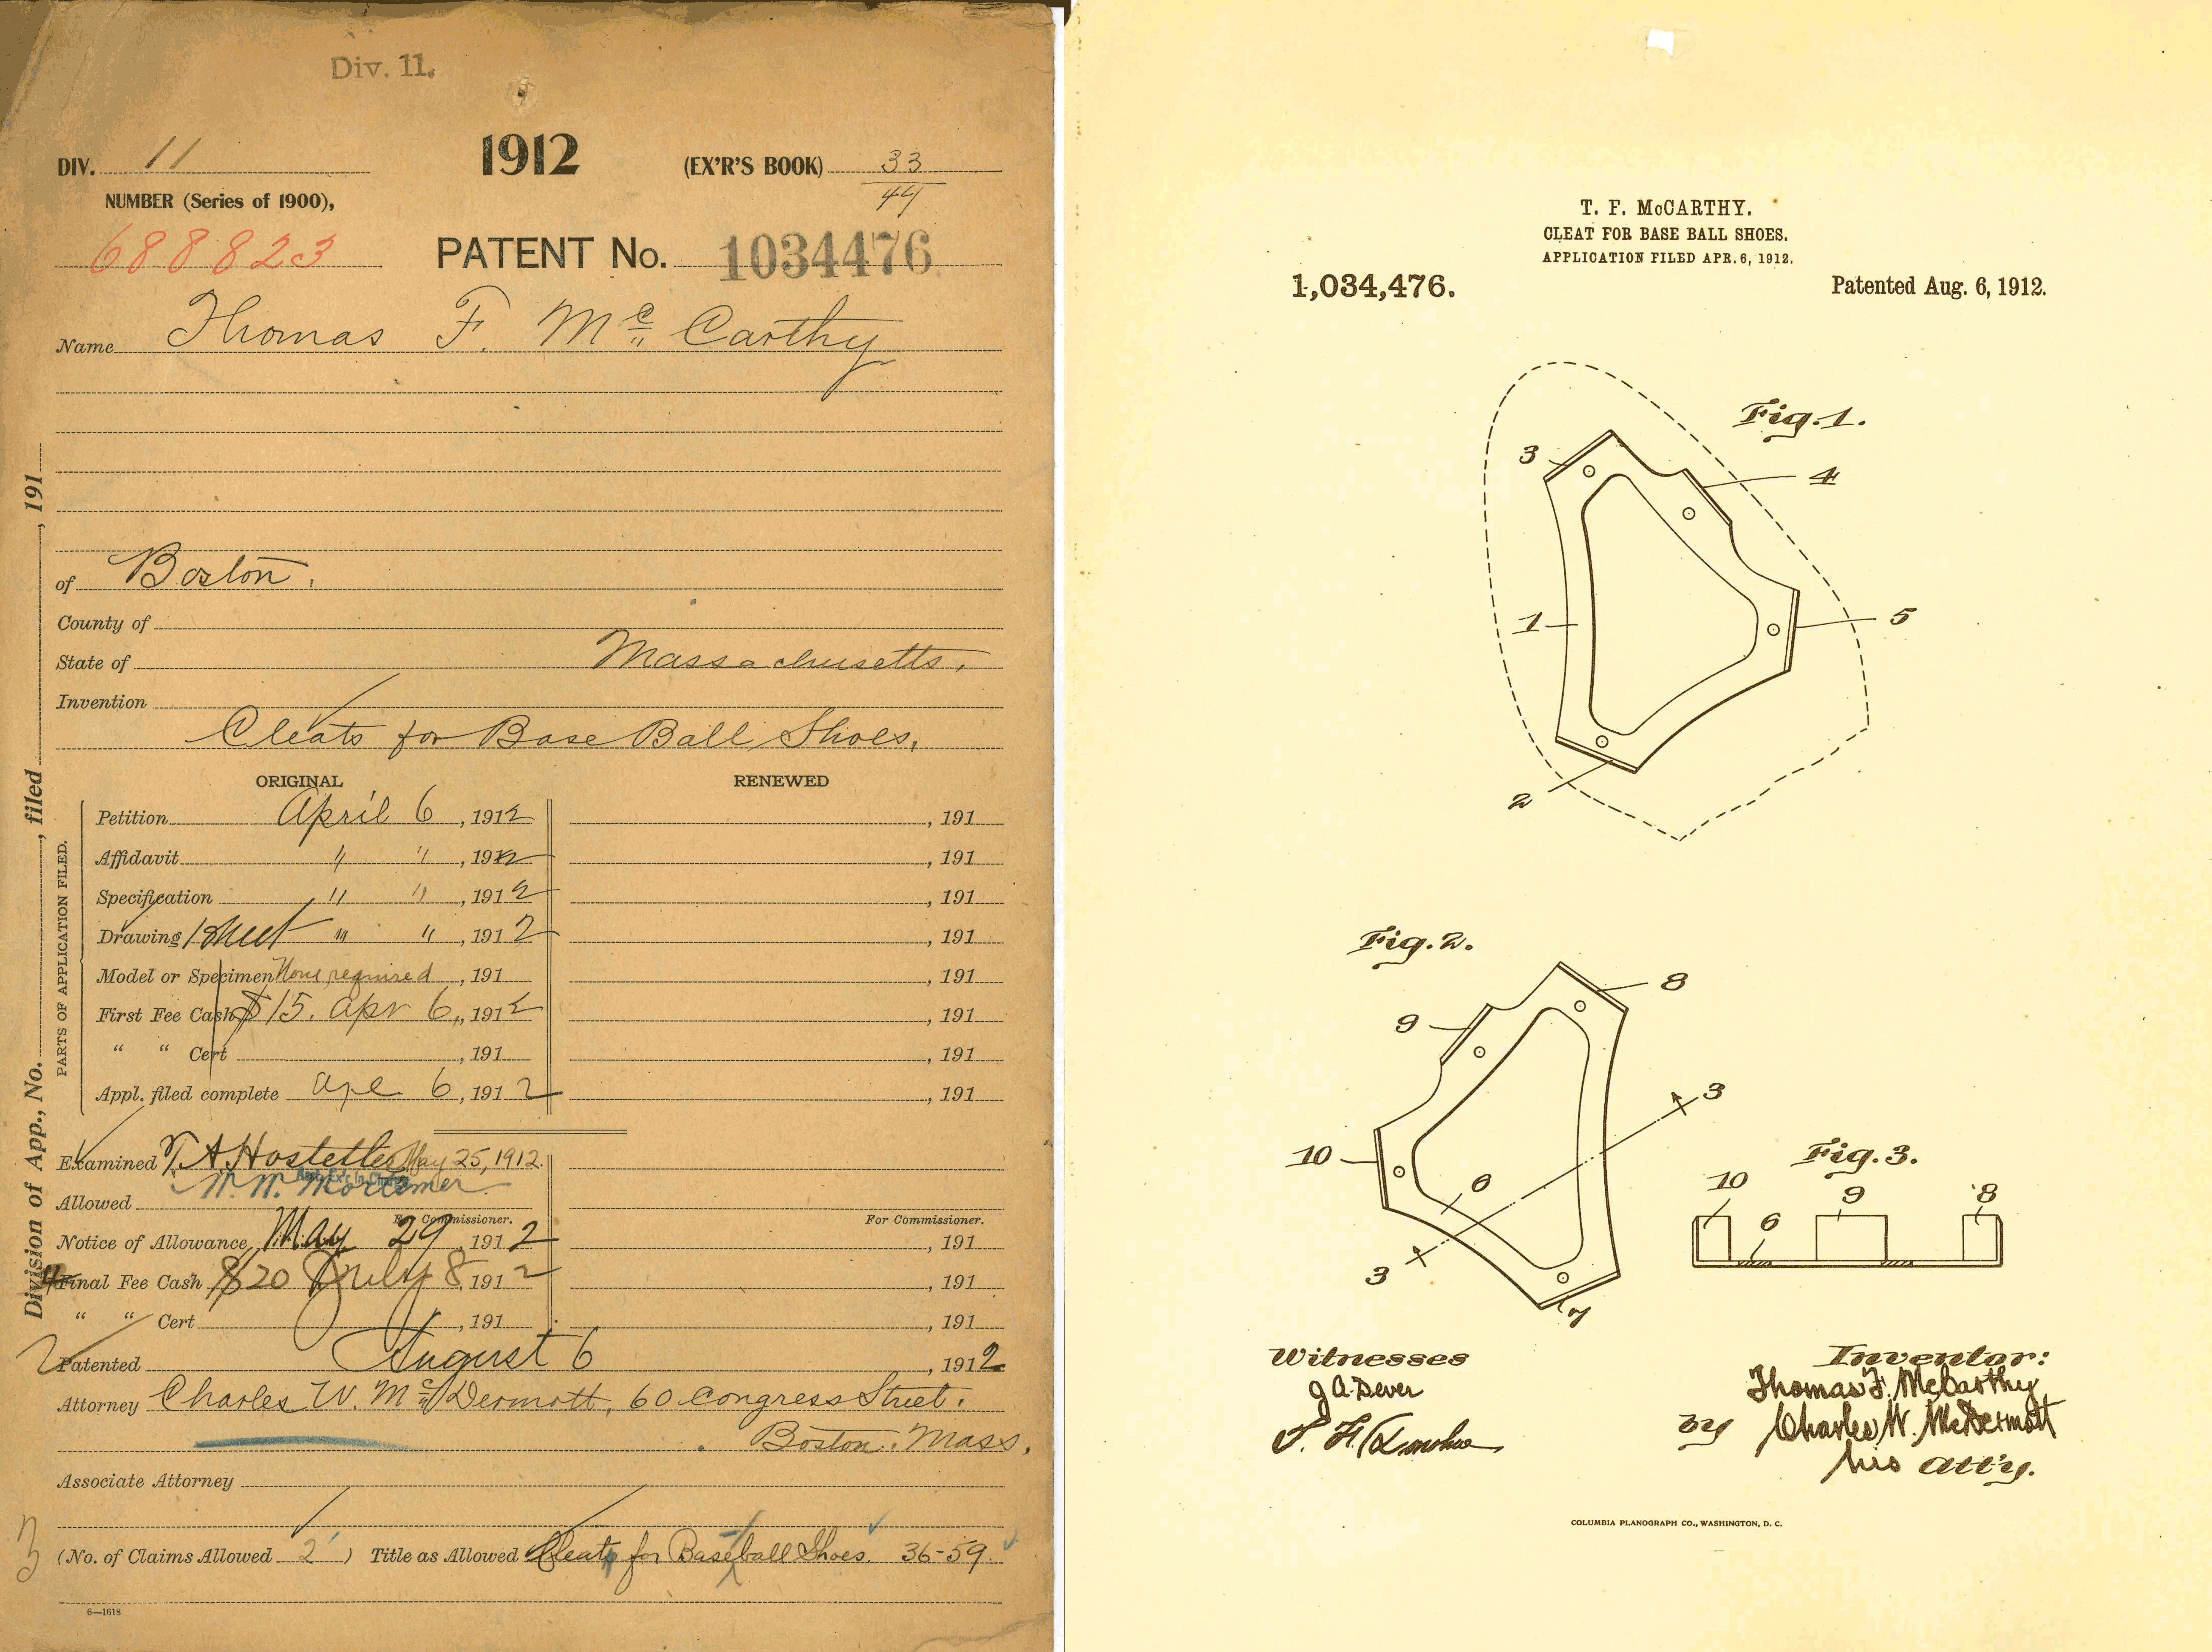 Div. 11.
DIV. 11
1912
(EX'R'S BOOK) 33
44
NUMBER (Series of 1900),
688823
PATENT No. 1034476
Name Thomas F. Mc Carthy
of Boston.
County of
State of Massachusetts.
Invention
Cleats for Base Ball Shoes.
ORIGINAL
RENEWED
Division of App., No. , filed , 191
PARTS OF APPLICATION FILED.
Petition April 6, 1912 , 191
Affidavit " " , 1912 , 191
Specification " " , 1912 , 191
Drawing 1 sheet " " , 1912 , 191
Model or Specimen None required , 191 , 191
First Fee Cash $15. Apr 6, 1912 , 191
" " Cert , 191 , 191
Appl. filed complete Apl 6, 1912 , 191
Examined T. A. Hostetler May 25, 1912.
Ass't. Ex'r in Charge
W. W. Mortimer
Allowed
For Commissioner. For Commissioner.
Notice of Allowance May 29, 1912 , 191
Final Fee Cash $20 July 8, 1912 , 191
" " Cert , 191 , 191
Patented August 6 , 1912
Attorney Charles W. Mc Dermott, 60 Congress Street.
Boston. Mass.
Associate Attorney
(No. of Claims Allowed 2 ) Title as Allowed Cleat for Base-ball Shoes. 36-59.
3
6—1618
T. F. McCARTHY.
CLEAT FOR BASE BALL SHOES.
APPLICATION FILED APR. 6, 1912.
1,034,476.
Patented Aug. 6, 1912.
Fig. 1.
3
4
1
5
2
Fig. 2.
8
9
3
10
6
3
7
Fig. 3.
10
9
8
6
Witnesses
J A Dever
Inventor:
Thomas F. McCarthy
by Charles W. McDermott
his att'y.
COLUMBIA PLANOGRAPH CO., WASHINGTON, D. C.